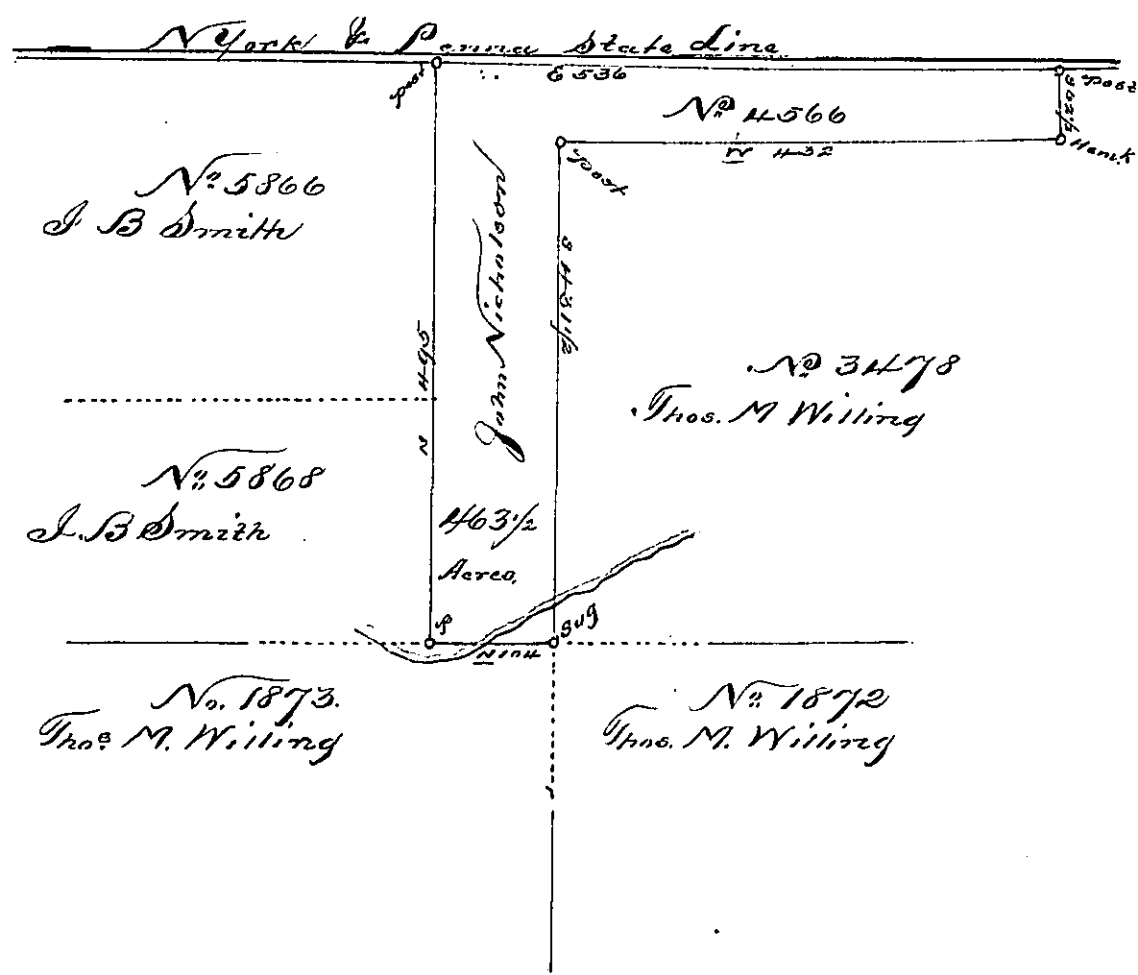 N York & Penna State Line
Post
E 536
Post
S 62½
Nº 4566
W 432
Hemk
Post
Nº 5866
I B Smith
John Nicholson
N 495
S 431½
Nº 3478
Thos. M Willing
Nº 5868
I. B Smith
463½
Acres,
P
Sug
W 104
No. 1873.
Thos M. Willing
Nº 1872
Thos. M. Willing